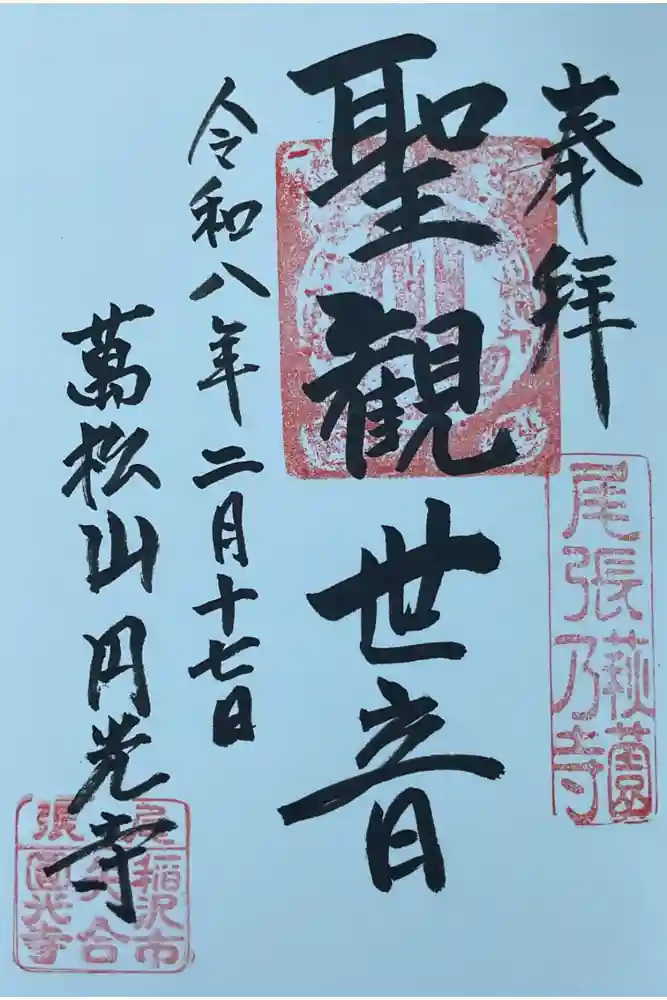 奉拝
尾張
萩園
乃寺
聖觀世音
令和八年二月十七日
萬松山円光寺
尾張
稲沢市
矢合
圓光寺